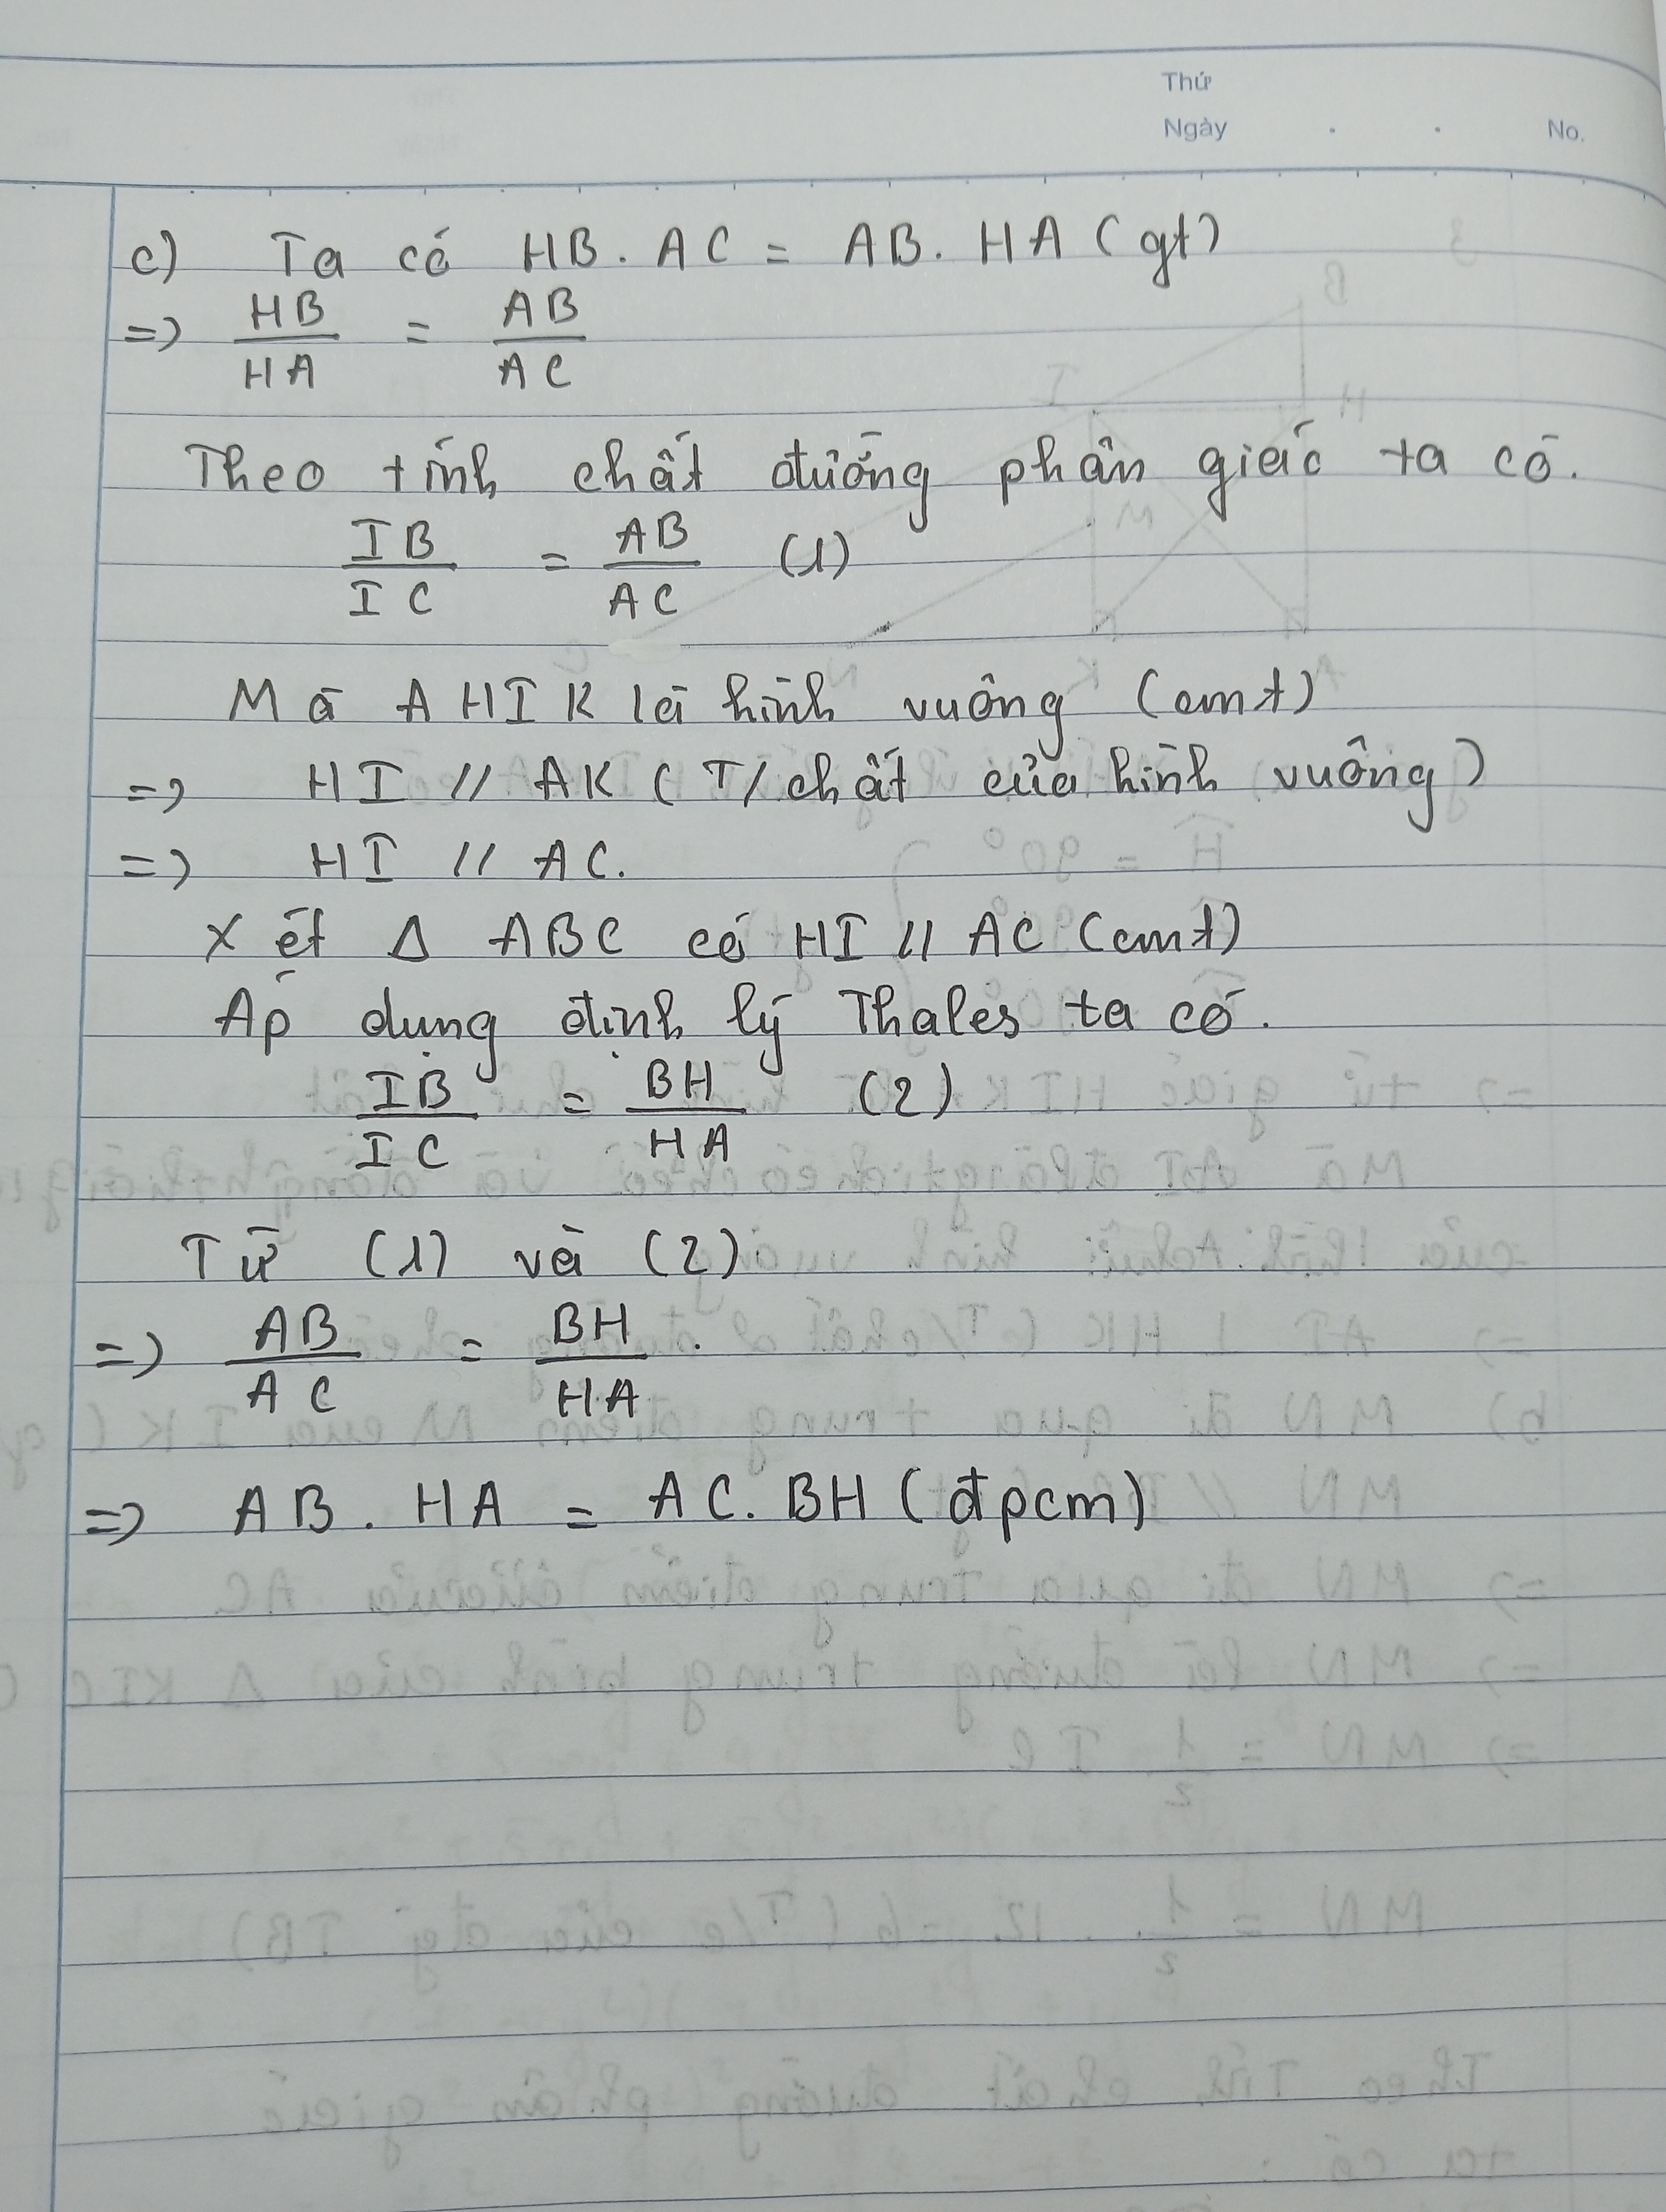 Thứ
Ngày . . No.
c) Ta có HB . AC = AB . HA (gt)
=> HB/HA = AB/AC
Theo tính chất đường phân giác ta có.
IB/IC = AB/AC (1)
Mà AHIK là hình vuông (cmt)
=> HI // AK (T/chất của hình vuông)
=> HI // AC.
Xét Δ ABC có HI // AC (cmt)
Áp dụng định lý Thales ta có.
IB/IC = BH/HA (2)
Từ (1) và (2)
=> AB/AC = BH/HA.
=> AB . HA = AC. BH (đpcm)